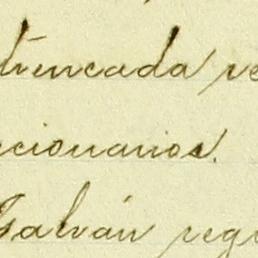 trincada re
cionarios.
Galván regr